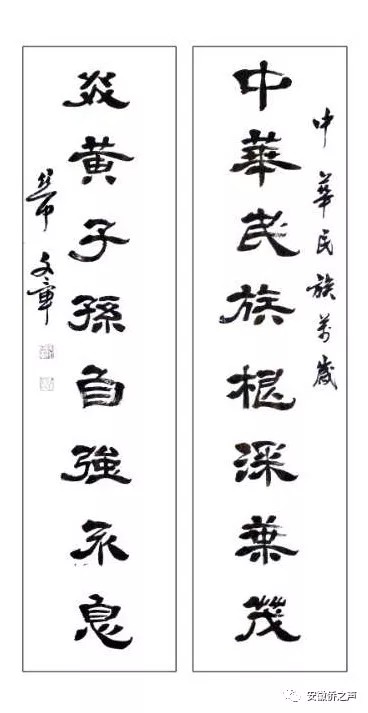 中華民族萬歲
中華民族根深葉茂
炎黄子孫自強不息
文章
安徽侨之声